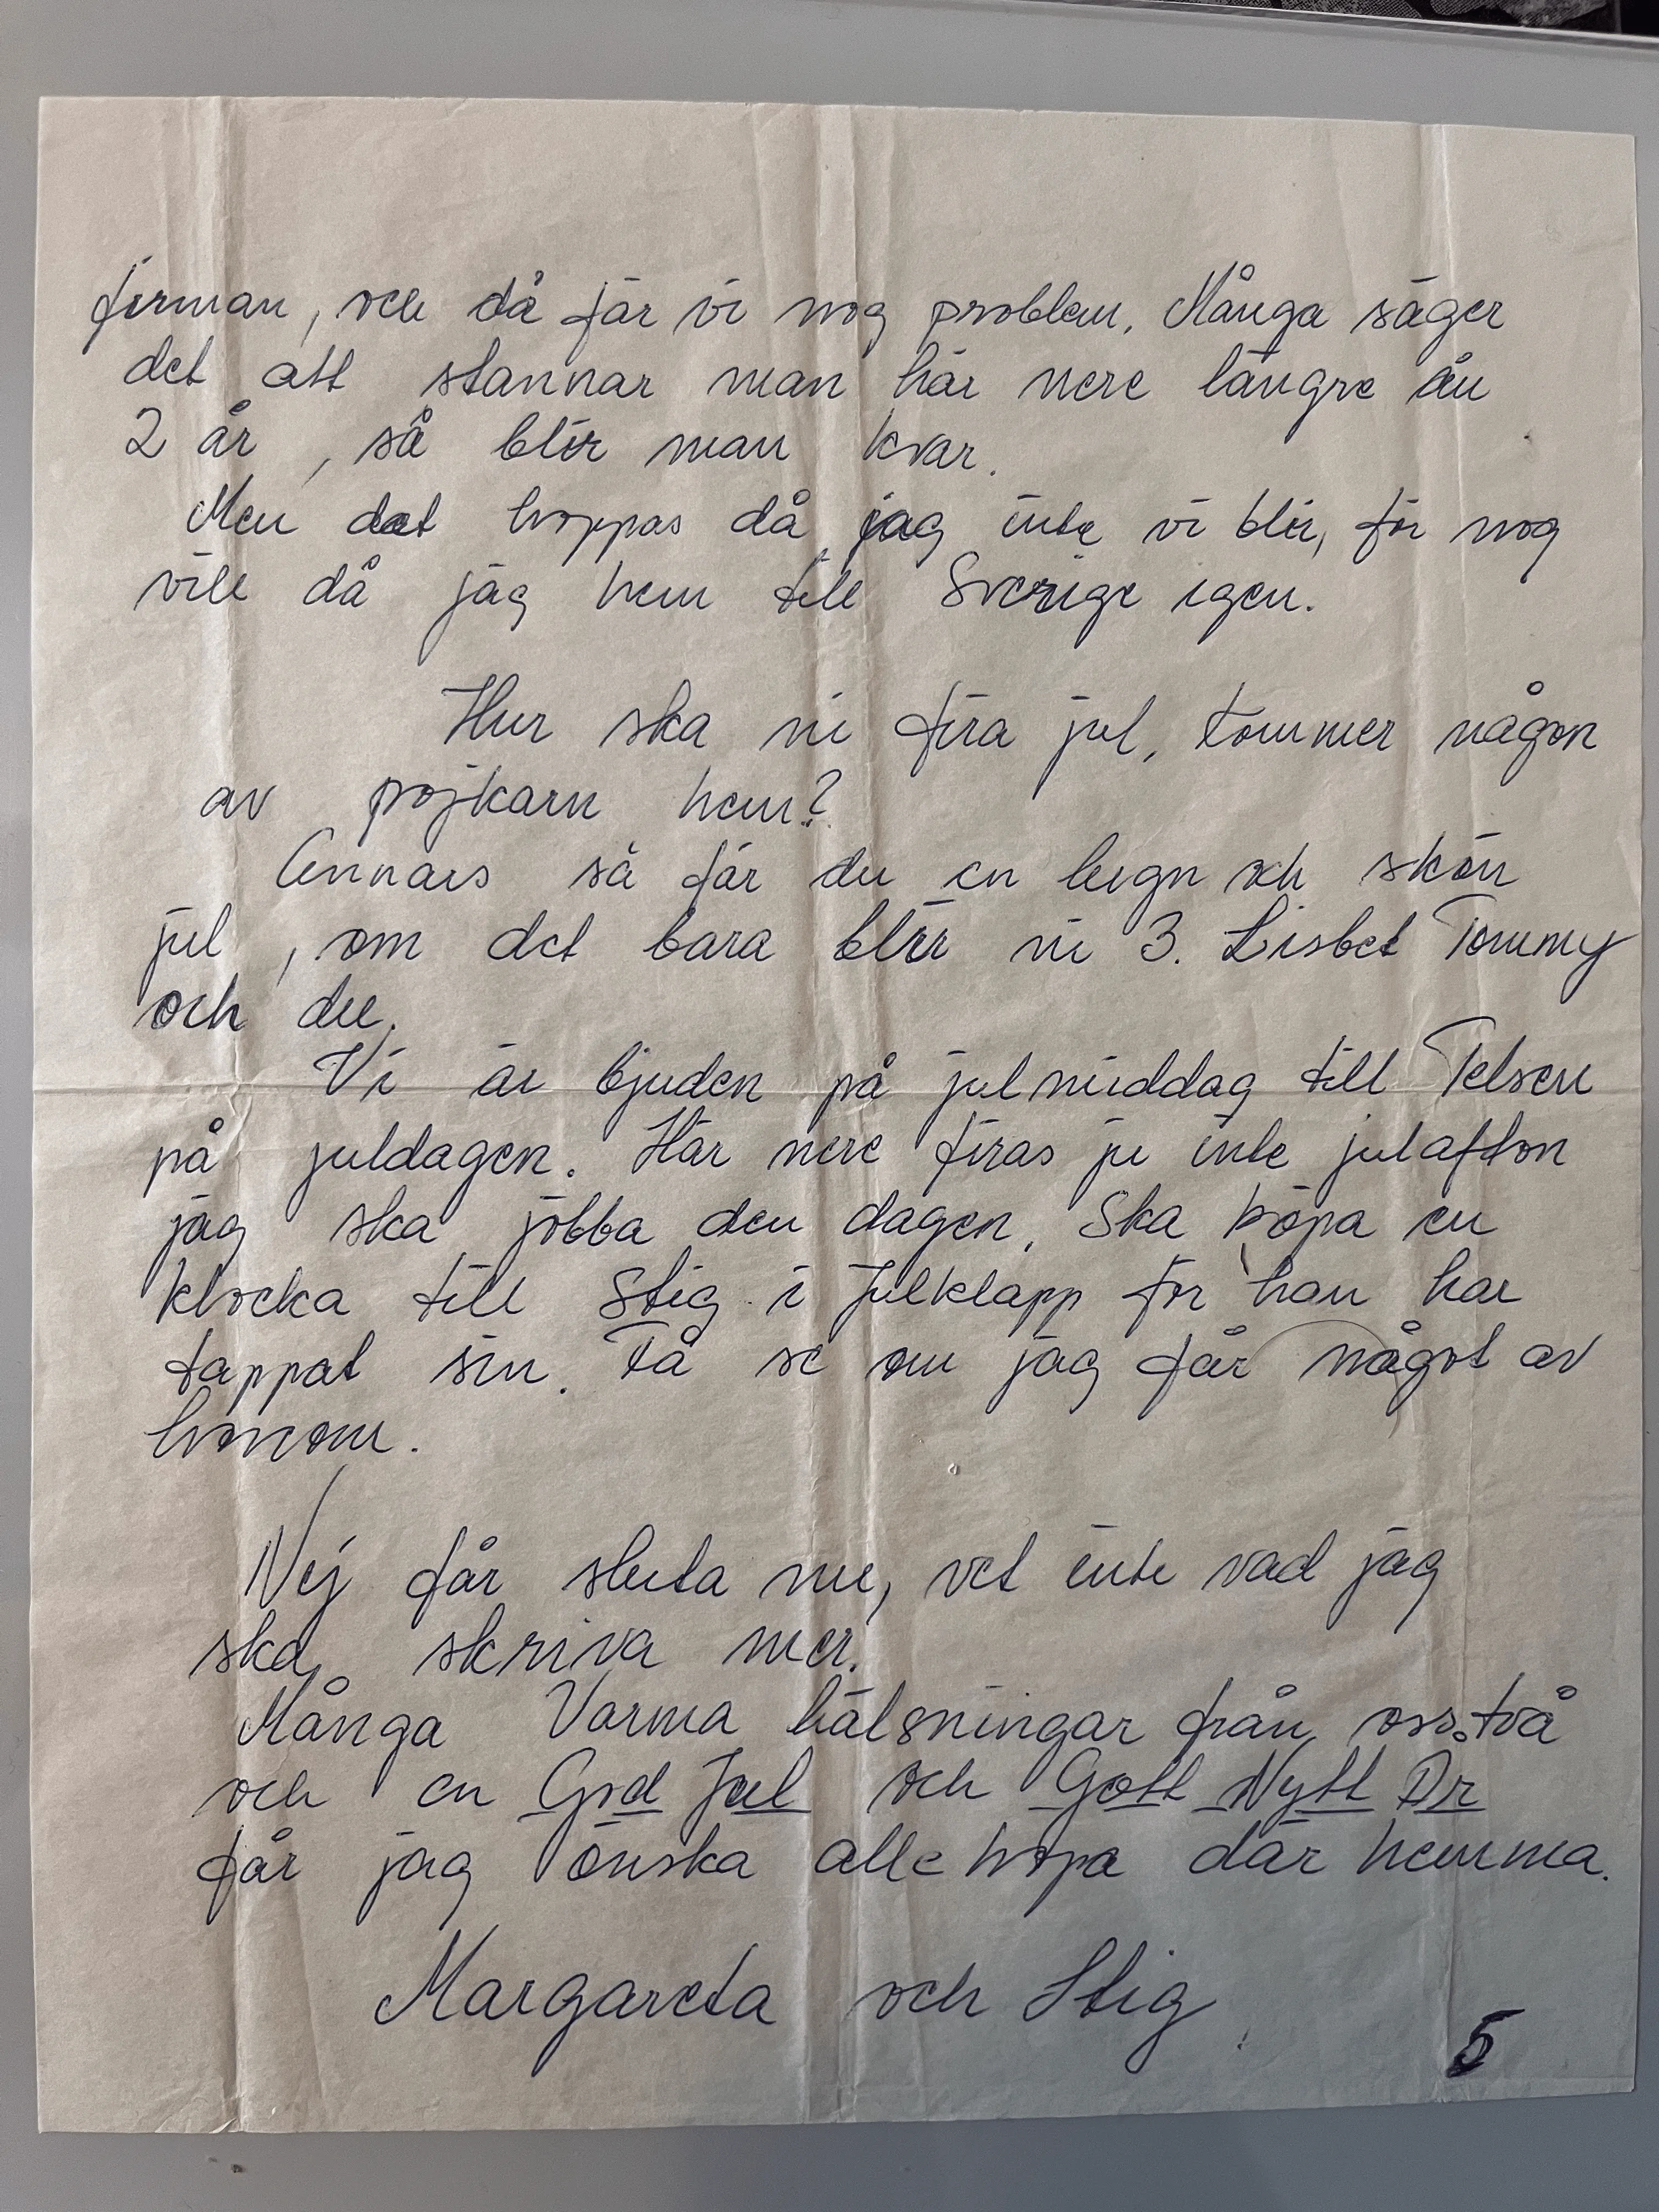 firman, och då får vi nog problem. Många säger
det att stannar man här nere längre än
2 år, så blir man kvar.
Men det hoppas då jag inte vi blir, för nog
vill då jag hem till Sverige igen.
Hur ska ni fira jul, kommer någon
av pojkarn hem?
Annars så får du en lugn och skön
jul, om det bara blir ni 3. Lisbet Tommy
och du.
Vi är bjuden på julmiddag till Telsen
på juldagen. Här nere firas ju inte julafton
jag ska jobba den dagen. Ska köpa en
klocka till Stig i julklapp för han har
tappat sin. Få se om jag får något av
honom.
Nej får sluta nu, vet inte vad jag
ska skriva mer.
Många Varma hälsningar från oss två
och en God Jul och Gott Nytt År
får jag önska allehopa där hemma.
Margareta och Stig
5